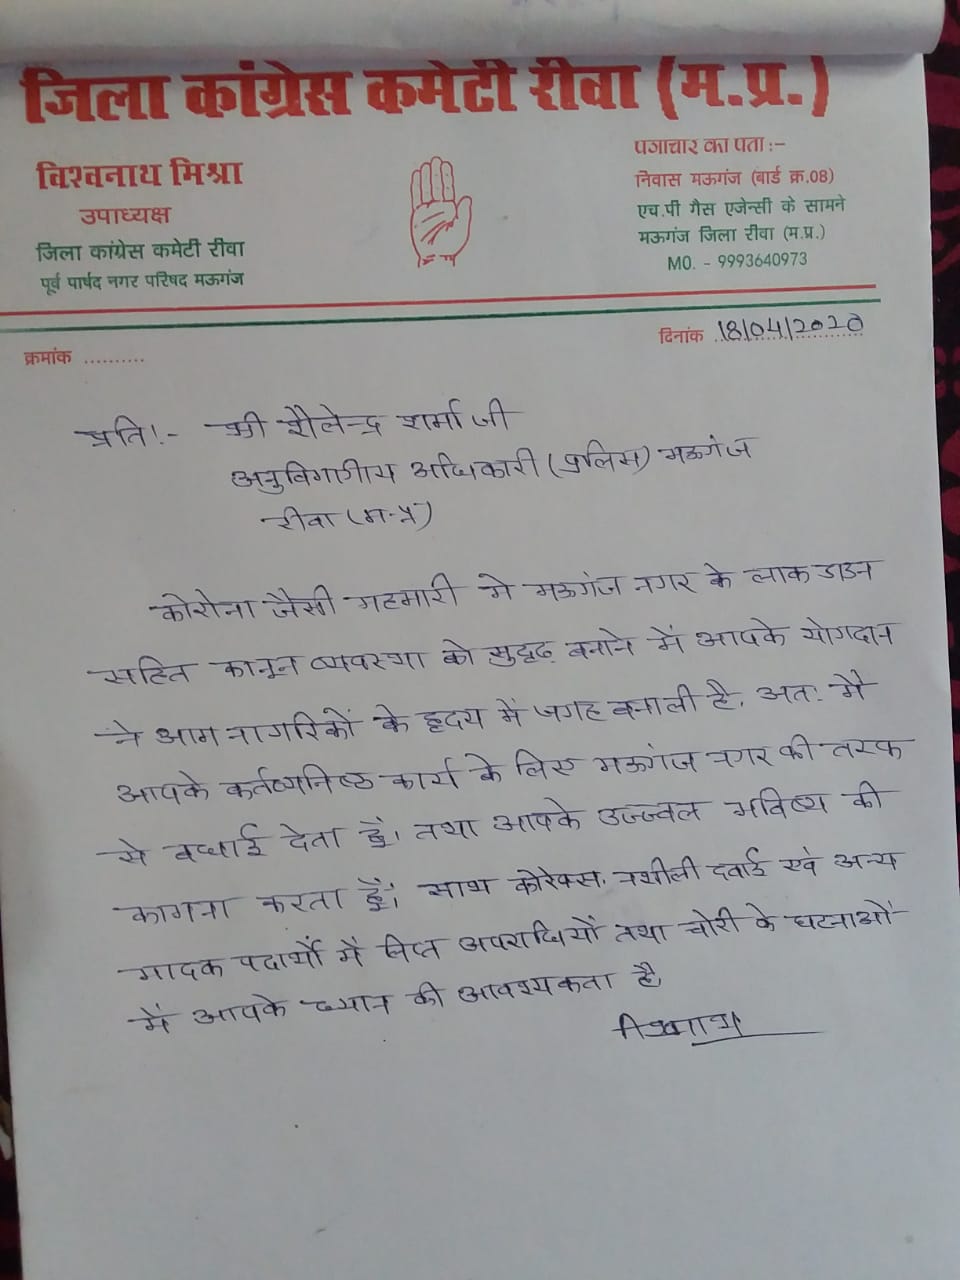 जिला कांग्रेस कमेटी रीवा (म.प्र.)
विश्वनाथ मिश्रा
उपाध्यक्ष
जिला कांग्रेस कमेटी रीवा
पूर्व पार्षद नगर परिषद मऊगंज
पत्राचार का पता :-
निवास मऊगंज (बार्ड क्र.08)
एच.पी गैस एजेन्सी के सामने
मऊगंज जिला रीवा (म.प्र.)
MO. - 9993640973
क्रमांक ..........
दिनांक 18/04/2020
प्रति।- श्री शैलेन्द्र शर्मा जी
अनुविभागीय अधिकारी (पुलिस) मऊगंज
रीवा (म.प्र)
कोरोना जैसी महामारी मे मऊगंज नगर के लाकडाउन
सहित कानून व्यवस्था को सुदृढ़ बनाने में आपके योगदान
ने आम नागरिकों के हृदय में जगह बनाली है, अतः मै
आपके कर्तव्यनिष्ठ कार्य के लिए मऊगंज नगर की तरफ
से बधाई देता हूँ। तथा आपके उज्ज्वल भविष्य की
कामना करता हूँ। साथ कोरेक्स, नशीली दवाई एवं अन्य
मादक पदार्थो में लिप्त अपराधियों तथा चोरी के घटनाओं
में आपके ध्यान की आवश्यकता है,